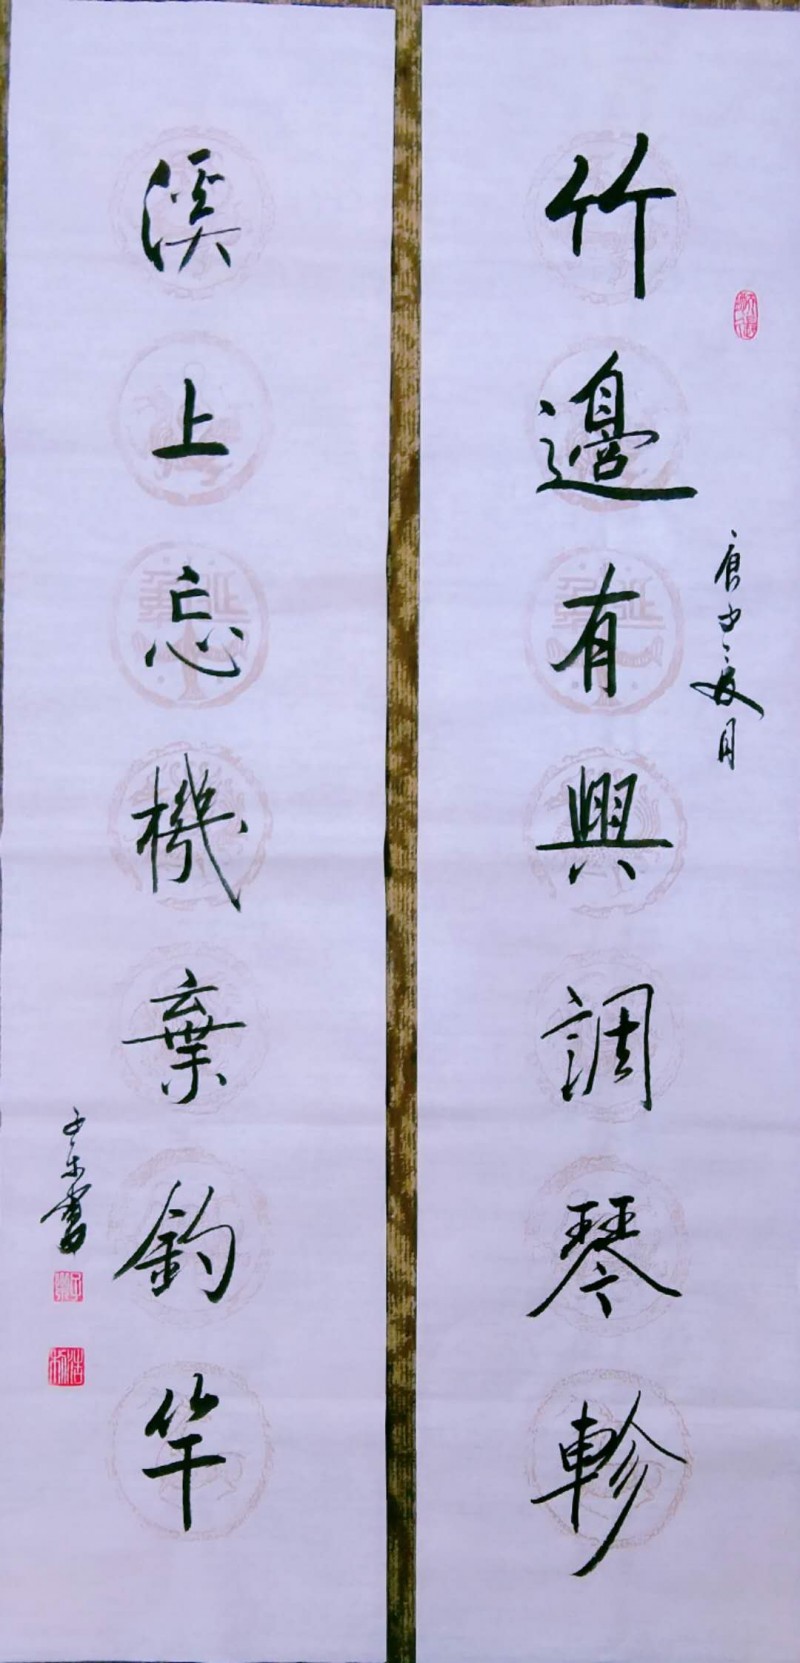 竹邊有興調琴軫
庚子夏月
溪上忘機棄釣竿
子樂書